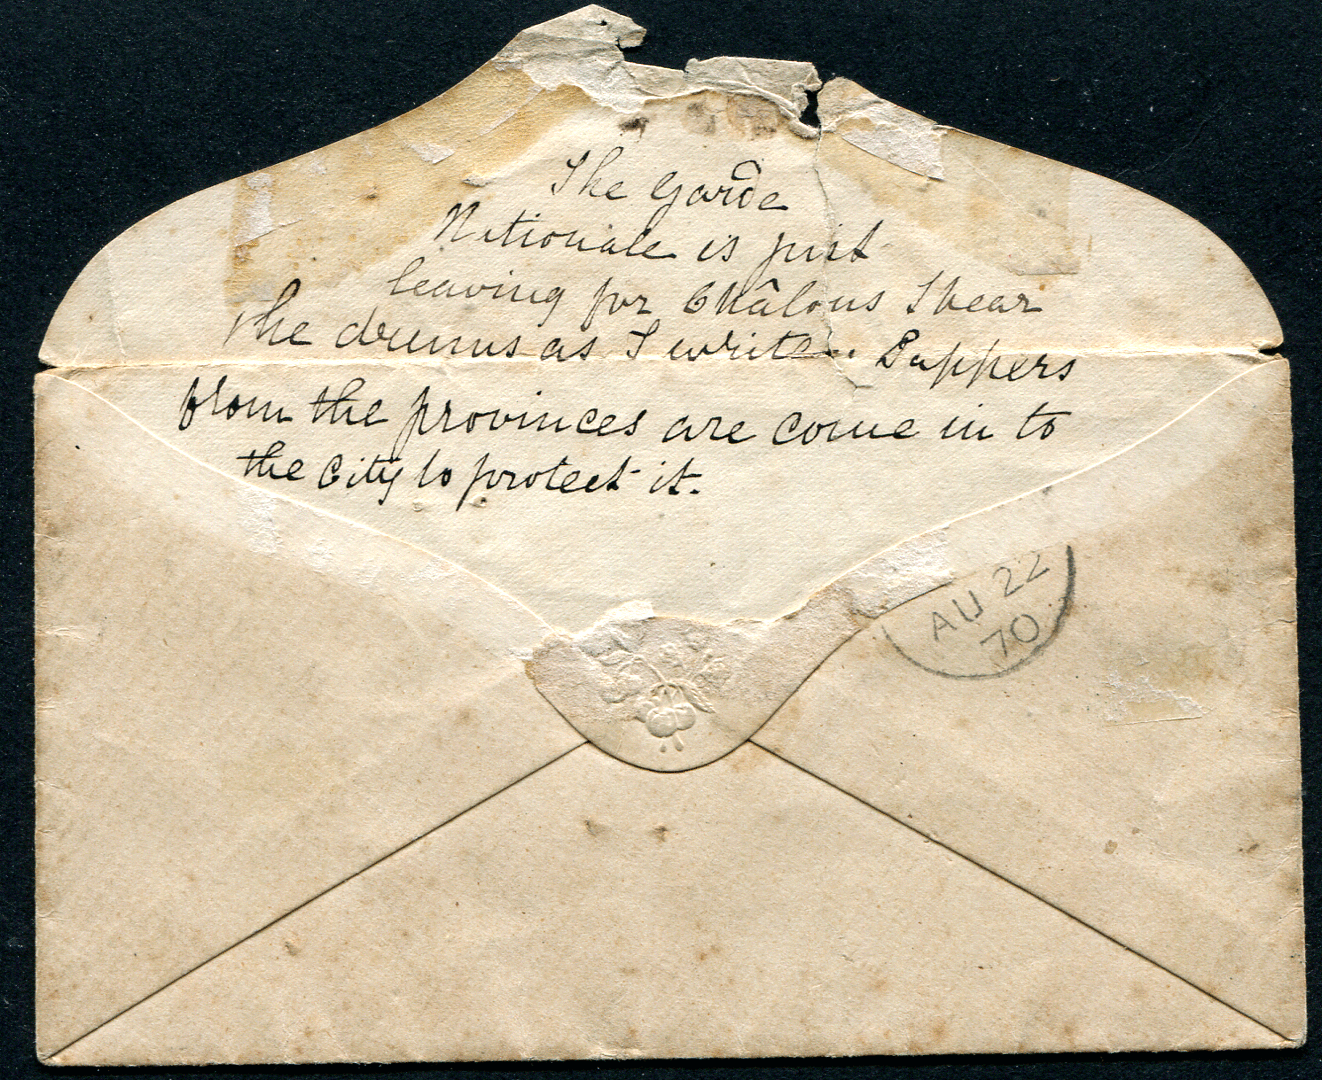 The Garde
Nationale is just
leaving for Châlons I hear
the drums as I write. Sappers
from the provinces are come in to
the City to protect it.
AU 22
70